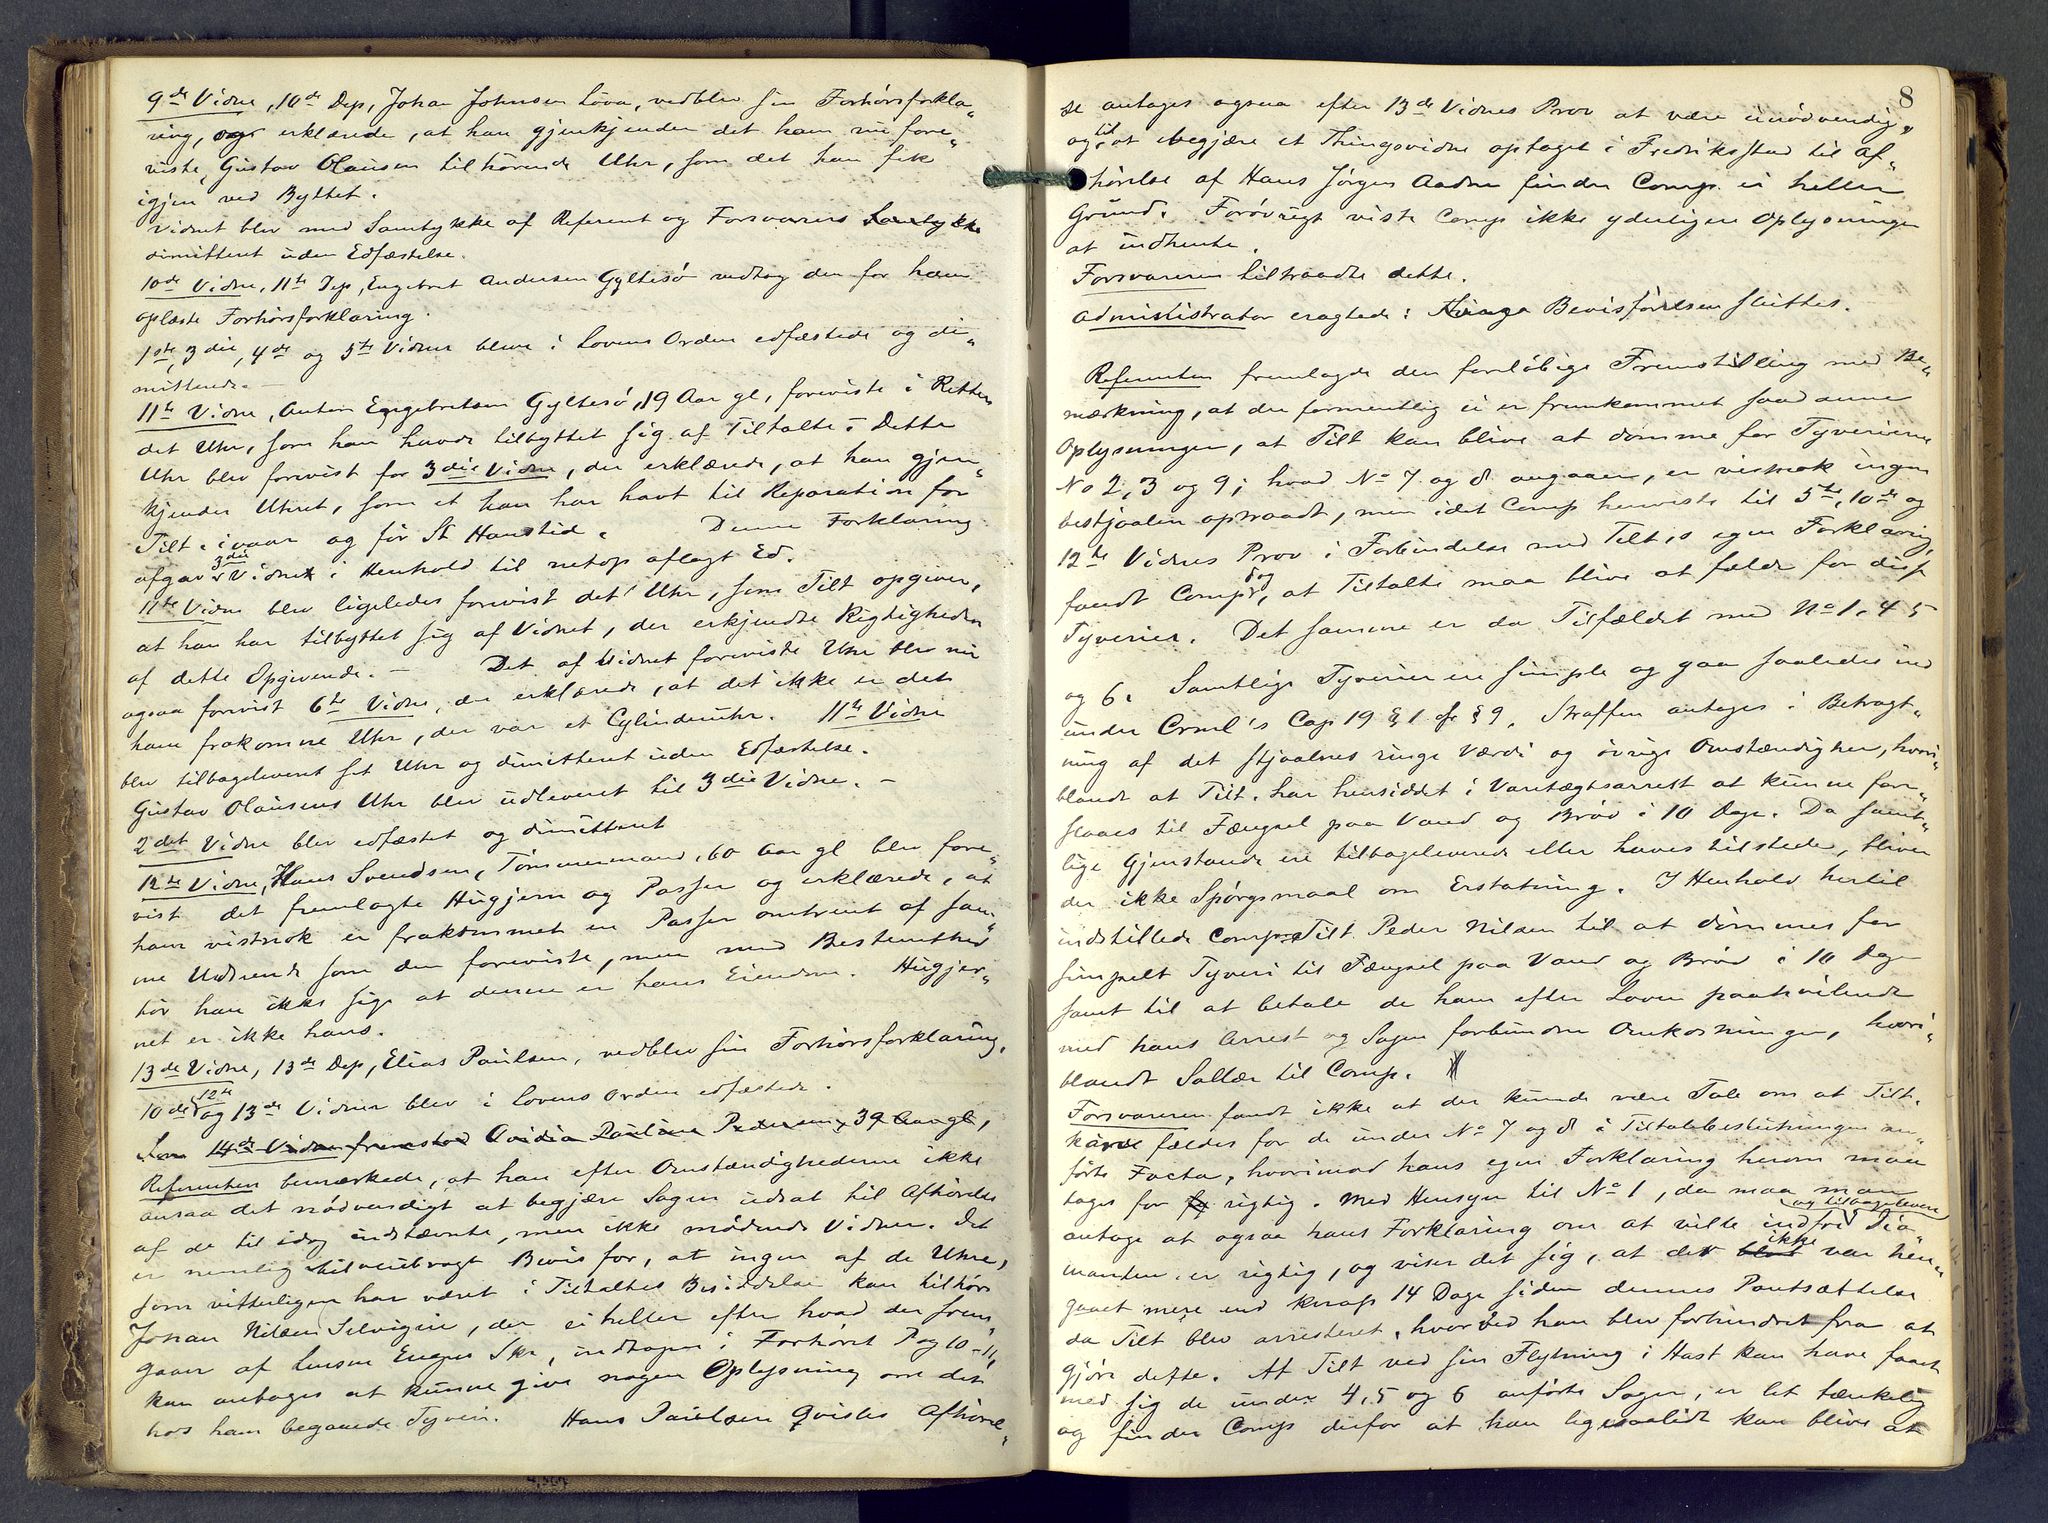 9de Vidne, 10de Dep, Johan Johnsen Löva, vedblev sin Forhörsforkla„
ring, og erklærede, at han gjenkjender det ham nu fore„
viste, Gustav Olausen tilhörende Uhr, som det han fik
igjen ved Byttet.
Vidnet blev med Samtykke af Referent og Forsvarers Samtykke
dimitteret uden Edfæstelse.
10de Vidne, 11te Dep, Engebret Andersen Gyltesö vedtog den for ham
oplæste Forhörsforklaring.
1ste, 3die, 4de og 5te Vidner bleve i Lovens Orden edfæstede og di„
mitterede. —
11te Vidne, Anton Engebretsen Gyltesö, 19 Aar gl, foreviste i Retten
det Uhr, som han havde tilbyttet sig af Tiltalte. — Dette
Uhr blev forevist for 3die Vidne, der erklærede, at han gjen„
kjender Uhret, som et han har havt til Reparation for
Tilt. ivaar og för St Hanstid. Denne Forklaring
afgav 3die Vidnet i Henhold til netop aflagt Ed.
11te Vidne blev ligeledes forevist det Uhr, som Tilt opgiver,
at han har tilbyttet sig af Vidnet, der erkjendte Rigtigheden
af dette Opgivende. — Det af Vidnet foreviste Uhr blev nu
ogsaa forevist 6te Vidne, der erklærede, at det ikke er det
ham frakomne Uhr, der var et Cylinderuhr. 11te Vidne
blev tilbageleveret sit Uhr og dimitteret uden Edfæstelse.
Gustav Olausens Uhr blev udleveret til 3die Vidne. —
2det Vidne blev edfæstet og dimitteret
12te Vidne, Hans Svendsen, Tömmermand, 60 Aar gl blev fore„
vist det fremlagte Hugjern og Passer og erklærede, at
ham vistnok er frakommet en Passer omtrent af sam„
me Udseende som den foreviste, men med Bestemthed
tör han ikke sige at denne er hans Eiendom. Hugjer„
net er ikke hans.
13de Vidne, 13de Dep, Elias Paulsen, vedblev sin Forhörsforklaring.
10de 12te og 13de Vidner blev i Lovens Orden edfæstede.
Som 14de Vidne fremstod Ovidia Pauline Pedersen, 39 Aar gl,
Referenten bemærkede, at han efter Omstændighederne ikke
ansaa det nödvendigt at begjære Sagen udsat til Afhörelse
af de til idag indstævnte, men ikke mödende Vidner. Det
er nemlig tilveiebragt Bevis for, at ingen af de Uhre,
som vitterligen har været i Tiltaltes Besiddelse kan tilhöre
Johan Nilsen Selvigen, der ei heller efter hvad der frem„
gaar af Lensm Engers Skr, indtagen i Forhöret Pag 10-11,
kan antages at kunne give nogen Oplysning om det
hos ham begaaede Tyveri. Hans Paulsen Qvistes Afhörel„
8
se antages ogsaa efter 13de Vidnes Prov at være unödvendig„
og til at begjære et Thingsvidne optaget i Fredriksstad til Af„
hörelse af Hans Jörgen Aadne finder Comp. ei heller
Grund. Forövrigt viste Comp ikke yderligere Oplysninger
at indhente.
Forsvareren tiltraadte dette.
Administrator eragtede: Bevisförelsen sluttes.
Referenten fremlagde den foreløbige Fremstilling med Be„
mærkning, at der formentlig ei er fremkommet saadanne
Oplysninger, at Tilt kan blive at dömme for Tyverierne
No 2, 3 og 9; hvad No 7 og 8 angaaer, er vistnok ingen
bestjaalen optraadt, men idet Comp henviste til 5te, 10de og
12te Vidnes Prov i Forbindelse med Tilt.s egen Forklaring,
fandt Comp dog, at Tiltalte maa blive at fælde for disse
Tyverier. Det samme er da Tilfældet med No 1, 4 5
og 6. Samtlige Tyverier ere simple og gaa saaledes ind
under Crml's Cap 19 § 1 cfr § 9. Straffen antages i Betragt„
ning af det stjaalnes ringe Værdi og övrige Omstændigher, hvori„
blandt at Tilt. har hensiddet i Varetægtsarrest at kunne fore„
slaaes til Fængsel paa Vand og Bröd i 10 Dage. Da samt„
lige Gjenstande ere tilbageleverede eller haves tilstede, bliver
der ikke Spörgsmaal om Erstatning. I Henhold hertil
indstillede Comp Tilt Peder Nilsen til at dömmes for
simpelt Tyveri til Fængsel paa Vand og Bröd i 10 Dage
samt til at betale de ham efter Loven paahvilende
med hans Arrest og Sagen forbundne Omkostninger, hvori„
blandt Sallær til Comp.
Forsvareren fandt ikke at der kunde være Tale om at Tilt.
kunde fældes for de under No 7 og 8 i Tiltalebeslutningen an„
förte Facta, hvorimod hans egen Forklaring herom maa
tages for rigtig. Med Hensyn til No 1, da maa man
antage at ogsaa hans Forklaring om at ville indfri og tilbagelevere Dia„
manten er rigtig, og viser det sig, at der ikke var hen„
gaaet mere end knap 14 Dage siden dennes Pantsættelse
da Tilt blev arresteret, hvorved han blev forhindret fra at
gjöre dette. At Tilt ved sin Flytning i Hast kan have faaet
med sig de under 4, 5 og 6 anförte Sager, er let tænkelig
og finder Comp derfor at han ligesaalidt kan blive at